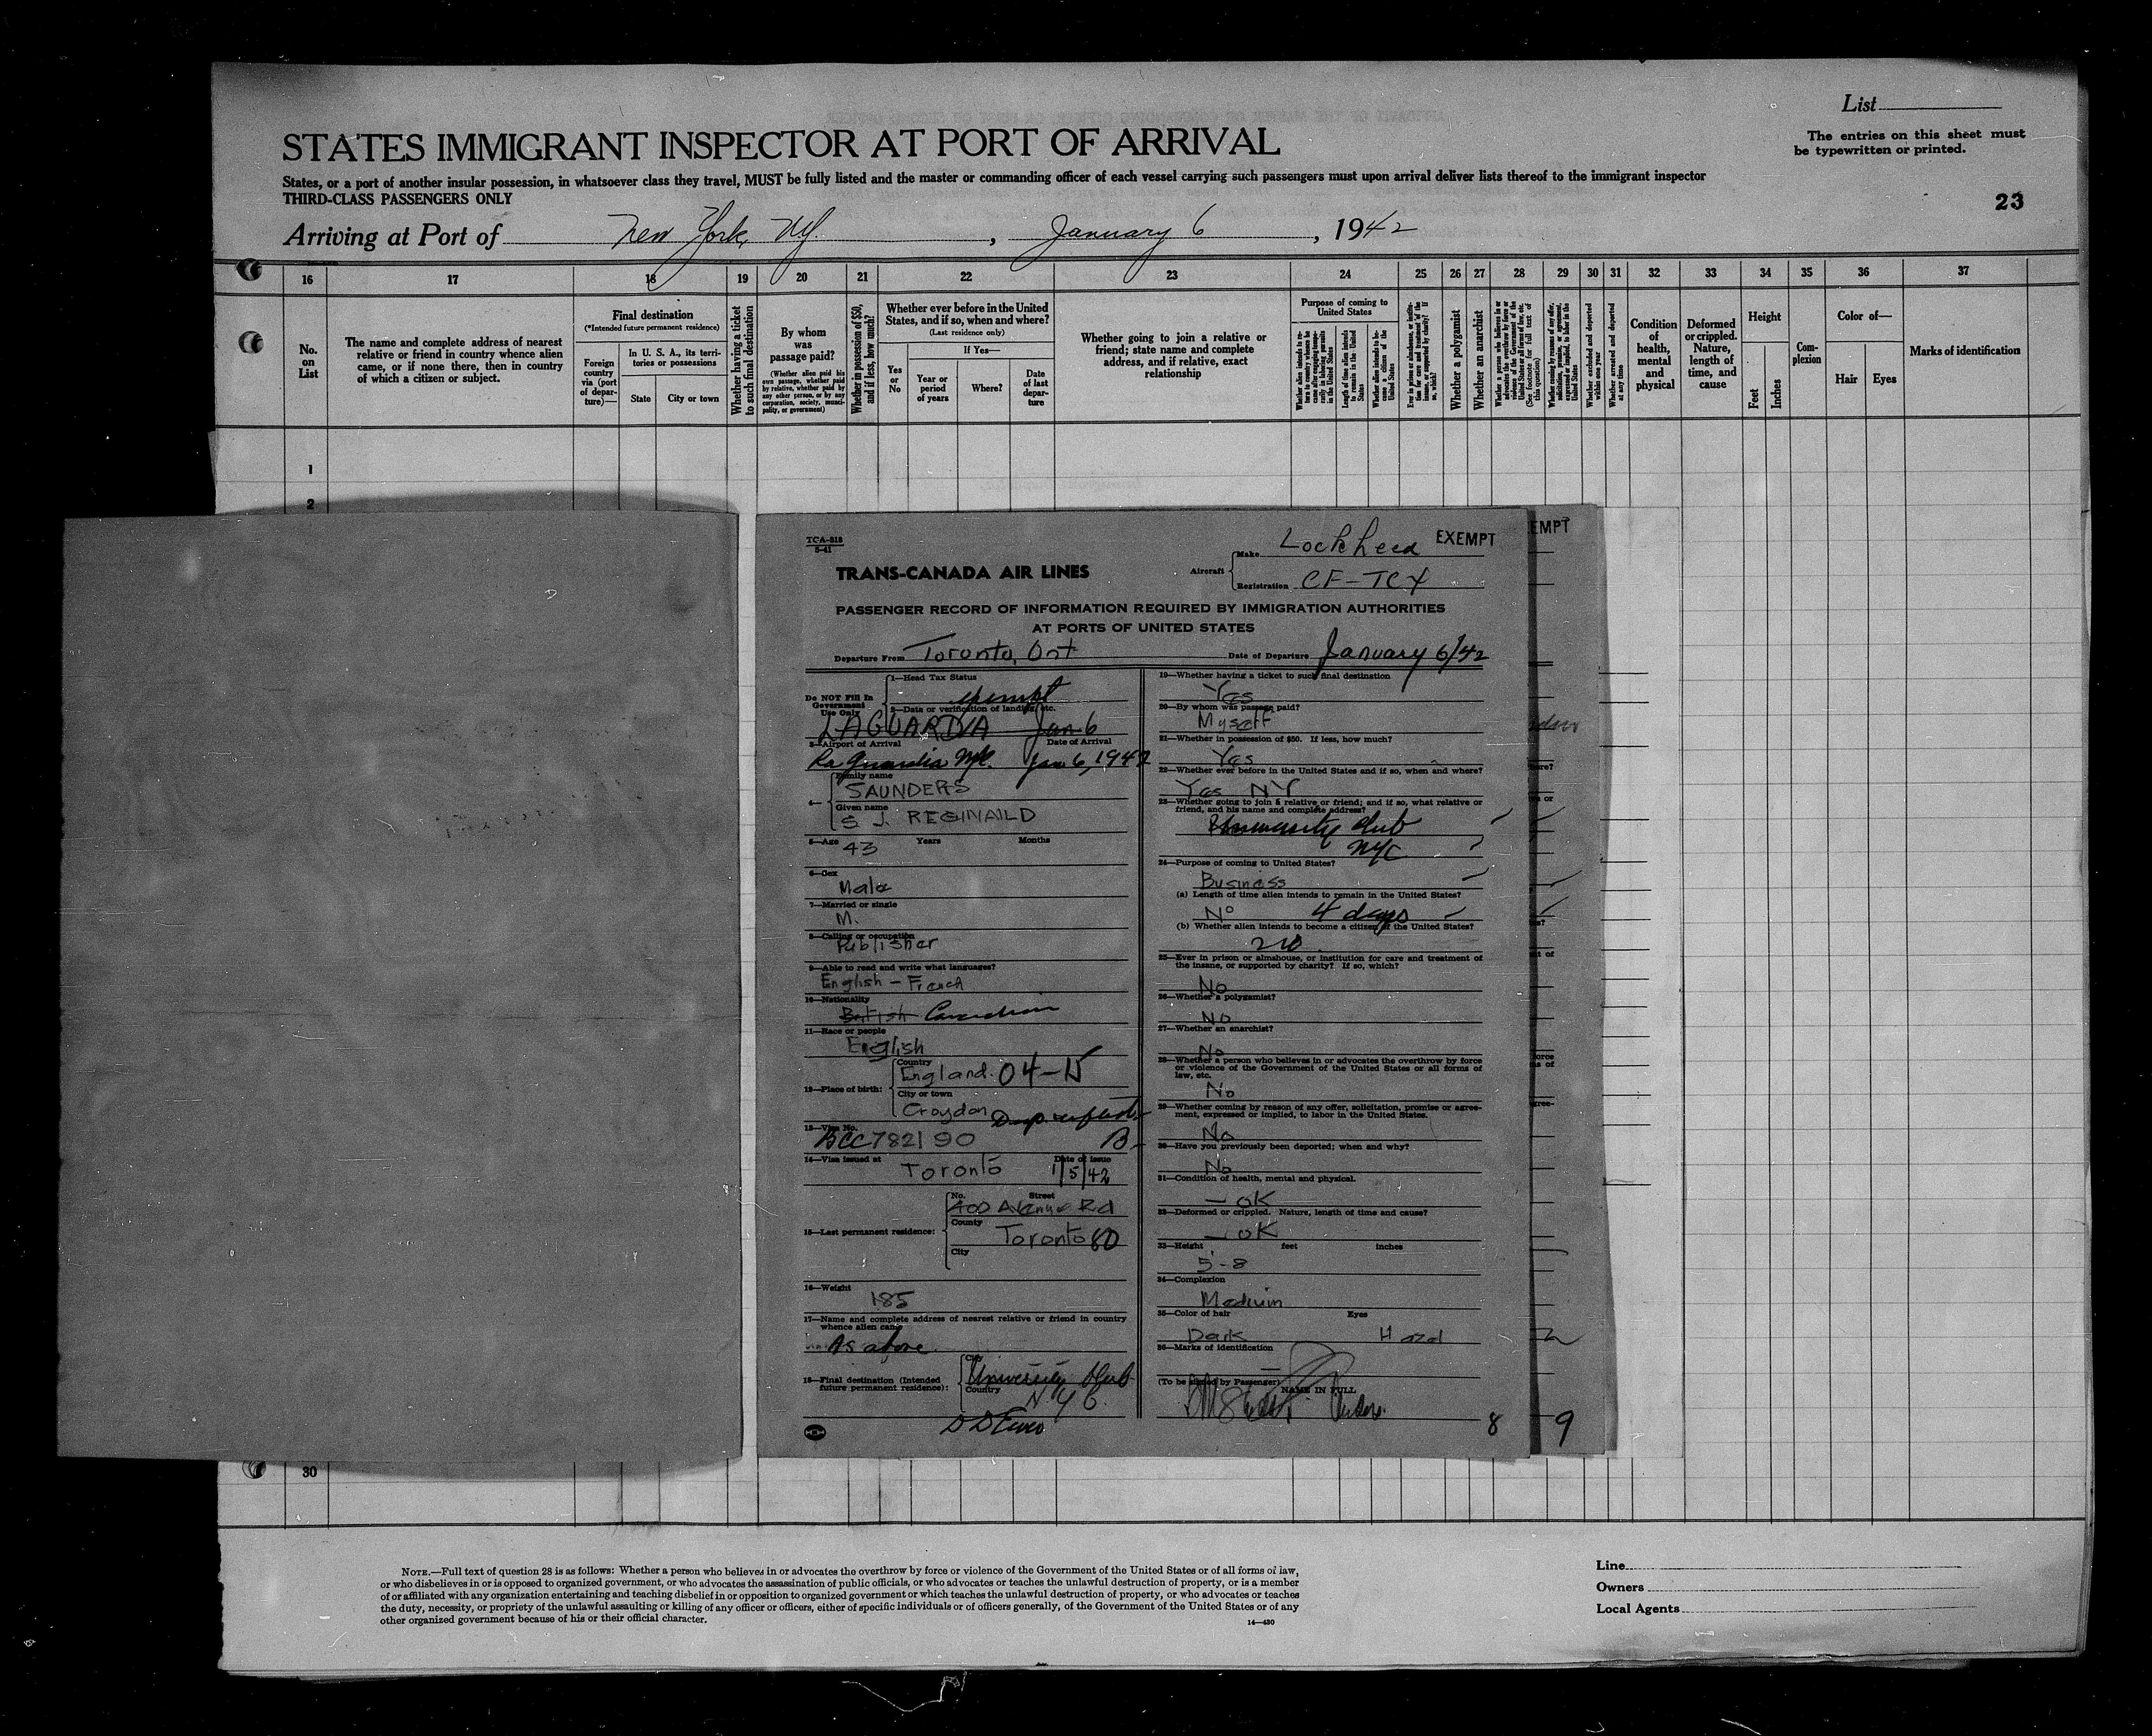 List
STATES IMMIGRANT INSPECTOR AT PORT OF ARRIVAL
The entries on this sheet must
be typewritten or printed.
States, or a port of another insular possession, in whatsoever class they travel, MUST be fully listed and the master or commanding officer of each vessel carrying such passengers must upon arrival deliver lists thereof to the immigrant inspector
THIRD-CLASS PASSENGERS ONLY
23
Arriving at Port of New York, NY. , January 6 , 1942
16 17 18 19 20 21 22 23 24 25 26 27 28 29 30 31 32 33 34 35 36 37
No.
on
List
The name and complete address of nearest
relative or friend in country whence alien
came, or if none there, then in country
of which a citizen or subject.
Final destination
(*Intended future permanent residence)
Foreign
country
via (port
of depar-
ture)—
In U. S. A., its terri-
tories or possessions
State
City or town
Whether having a ticket
to such final destination
By whom
was
passage paid?
(Whether alien paid his
own passage, whether paid
by relative, whether paid by
any other person, or by any
corporation, society, munici-
pality, or government)
Whether in possession of $50,
and if less, how much?
Whether ever before in the United
States, and if so, when and where?
(Last residence only)
Yes
or
No
If Yes—
Year or
period
of years
Where?
Date
of last
depar-
ture
Whether going to join a relative or
friend; state name and complete
address, and if relative, exact
relationship
Purpose of coming to
United States
Length of time alien intends
to remain in the United
States
Whether alien intends to be-
come a citizen of the
United States
Whether a polygamist
Whether an anarchist
Whether excluded and deported
within one year
Whether arrested and deported
at any time
Condition
of
health,
mental
and
physical
Deformed
or crippled.
Nature,
length of
time, and
cause
Height
Feet
Inches
Com-
plexion
Color of—
Hair
Eyes
Marks of identification
1
2
TCA-318
5-41
Aircraft
Make Lockheed
EXEMPT
EMPT
TRANS-CANADA AIR LINES
Registration CF-TCX
PASSENGER RECORD OF INFORMATION REQUIRED BY IMMIGRATION AUTHORITIES
AT PORTS OF UNITED STATES
Departure From Toronto, Ont
Date of Departure January 6/42
Do NOT Fill In
Government
Use Only
1—Head Tax Status
exempt
2—Data or verification of landing, etc.
LAGUARDIA Jan 6
3—Airport of Arrival Date of Arrival
La Guardia Jan 6, 1942
4—
Family name
SAUNDERS
Given name
S J. REGINAILD
5—Age 43 Years Months
6—Sex
Male
7—Married or single
M.
8—Calling or occupation
Publisher
9—Able to read and write what languages?
English - French
10—Nationality
British Canadian
11—Race or people
English
12—Place of birth:
Country
England. 04-
City or town
Croydon
13—Visa No.
BCC782190 B-
14—Visa issued at Date of issue
Toronto 1/5/42
15—Last permanent residence:
No. Street
400 Avenue Rd
County
Toronto 80
City
16—Weight
185
17—Name and complete address of nearest relative or friend in country
whence alien came
As above.
18—Final destination (Intended
future permanent residence):
City
University Club
Country
N.Y.C.
19—Whether having a ticket to such final destination
Yes
20—By whom was passage paid?
Myself
21—Whether in possession of $50. If less, how much?
Yes
22—Whether ever before in the United States and if so, when and where?
Yes NY
23—Whether going to join a relative or friend; and if so, what relative or
friend, and his name and complete address?
University Club
NYC
24—Purpose of coming to United States?
Business
(a) Length of time alien intends to remain in the United States?
No 4 days
(b) Whether alien intends to become a citizen of the United States?
no
25—Ever in prison or almshouse, or institution for care and treatment of
the insane, or supported by charity? If so, which?
No
26—Whether a polygamist?
No
27—Whether an anarchist?
No
28—Whether a person who believes in or advocates the overthrow by force
or violence of the Government of the United States or all forms of
law, etc.
No
29—Whether coming by reason of any offer, solicitation, promise or agree-
ment, expressed or implied, to labor in the United States.
No
30—Have you previously been deported; when and why?
No
31—Condition of health, mental and physical.
— OK
32—Deformed or crippled. Nature, length of time and cause?
— OK
33—Height feet inches
5-8
34—Complexion
Medium
35—Color of hair Eyes
Dark Hazel
36—Marks of identification
—
(To be signed by Passenger)
NAME IN FULL
8 9
30
NOTE.—Full text of question 28 is as follows: Whether a person who believes in or advocates the overthrow by force or violence of the Government of the United States or of all forms of law,
or who disbelieves in or is opposed to organized government, or who advocates the assassination of public officials, or who advocates or teaches the unlawful destruction of property, or is a member
of or affiliated with any organization entertaining and teaching disbelief in or opposition to organized government or which teaches the unlawful destruction of property, or who advocates or teaches
the duty, necessity, or propriety of the unlawful assaulting or killing of any officer or officers, either of specific individuals or of officers generally, of the Government of the United States or of any
other organized government because of his or their official character.
14—430
Line
Owners
Local Agents